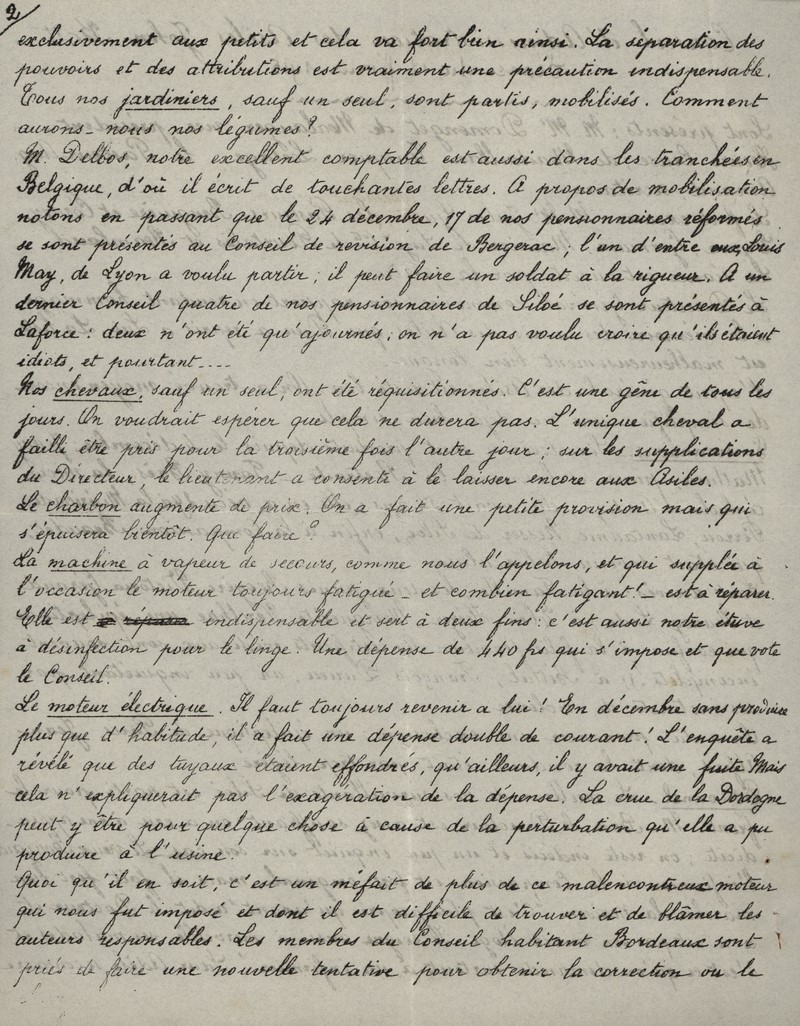 2/
exclusivement aux petits et cela va fort bien ainsi. La séparation des
pouvoirs et des attributions est vraiment une précaution indispensable.
Tous nos jardiniers, sauf un seul, sont partis, mobilisés. Comment
aurons-nous nos légumes?
M. Delbos, notre excellent comptable est aussi dans les tranchées en
Belgique, d'où il écrit de touchantes lettres. A propos de mobilisation
notons en passant que le 24 décembre, 17 de nos pensionnaires réformés
se sont présentés au Conseil de revision de Bergerac; l'un d'entre eux, Louis
May, de Lyon a voulu partir; il peut faire un soldat à la rigueur. A un
dernier Conseil quatre de nos pensionnaires de Siloé se sont présentés à
Laforce: deux n'ont été qu'ajournés; on n'a pas voulu croire qu'ils étaient
idiots, et pourtant....
Nos chevaux, sauf un seul, ont été réquisitionnés. C'est une gêne de tous les
jours. On voudrait espérer que cela ne durera pas. L'unique cheval a
failli être pris pour la troisième fois l'autre jour; sur les supplications
du Directeur, le lieutenant a consenti à le laisser encore aux Asiles.
Le charbon augmente de prix. On a fait une petite provision mais qui
s'épuisera bientôt. Que faire?
La machine à vapeur de secours, comme nous l'appelons, et qui supplée à
l'occasion le moteur toujours fatigué - et combien fatigant! - est à réparer.
Elle est indispensable et sert à deux fins: c'est aussi notre étuve
à désinfection pour le linge. Une dépense de 440 frs qui s'impose et que vote
le Conseil.
Le moteur électrique. Il faut toujours revenir a lui! En décembre sans produire
plus que d'habitude, il a fait une dépense double de courant! L'enquête a
révélé que des tuyaux étaient effondrés, qu'ailleurs, il y avait une fuite Mais
cela n'expliquerait pas l'exagération de la dépense. La crue de la Dordogne
peut y être pour quelque chose à cause de la perturbation qu'elle a pu
produire à l'usine.
Quoi qu'il en soit, c'est un méfait de plus de ce malencontreux moteur
qui nous fut imposé et dont il est difficile de trouver et de blâmer les
auteurs responsables. Les membres du Conseil habitant Bordeaux sont
priés de faire une nouvelle tentative pour obtenir la correction ou le